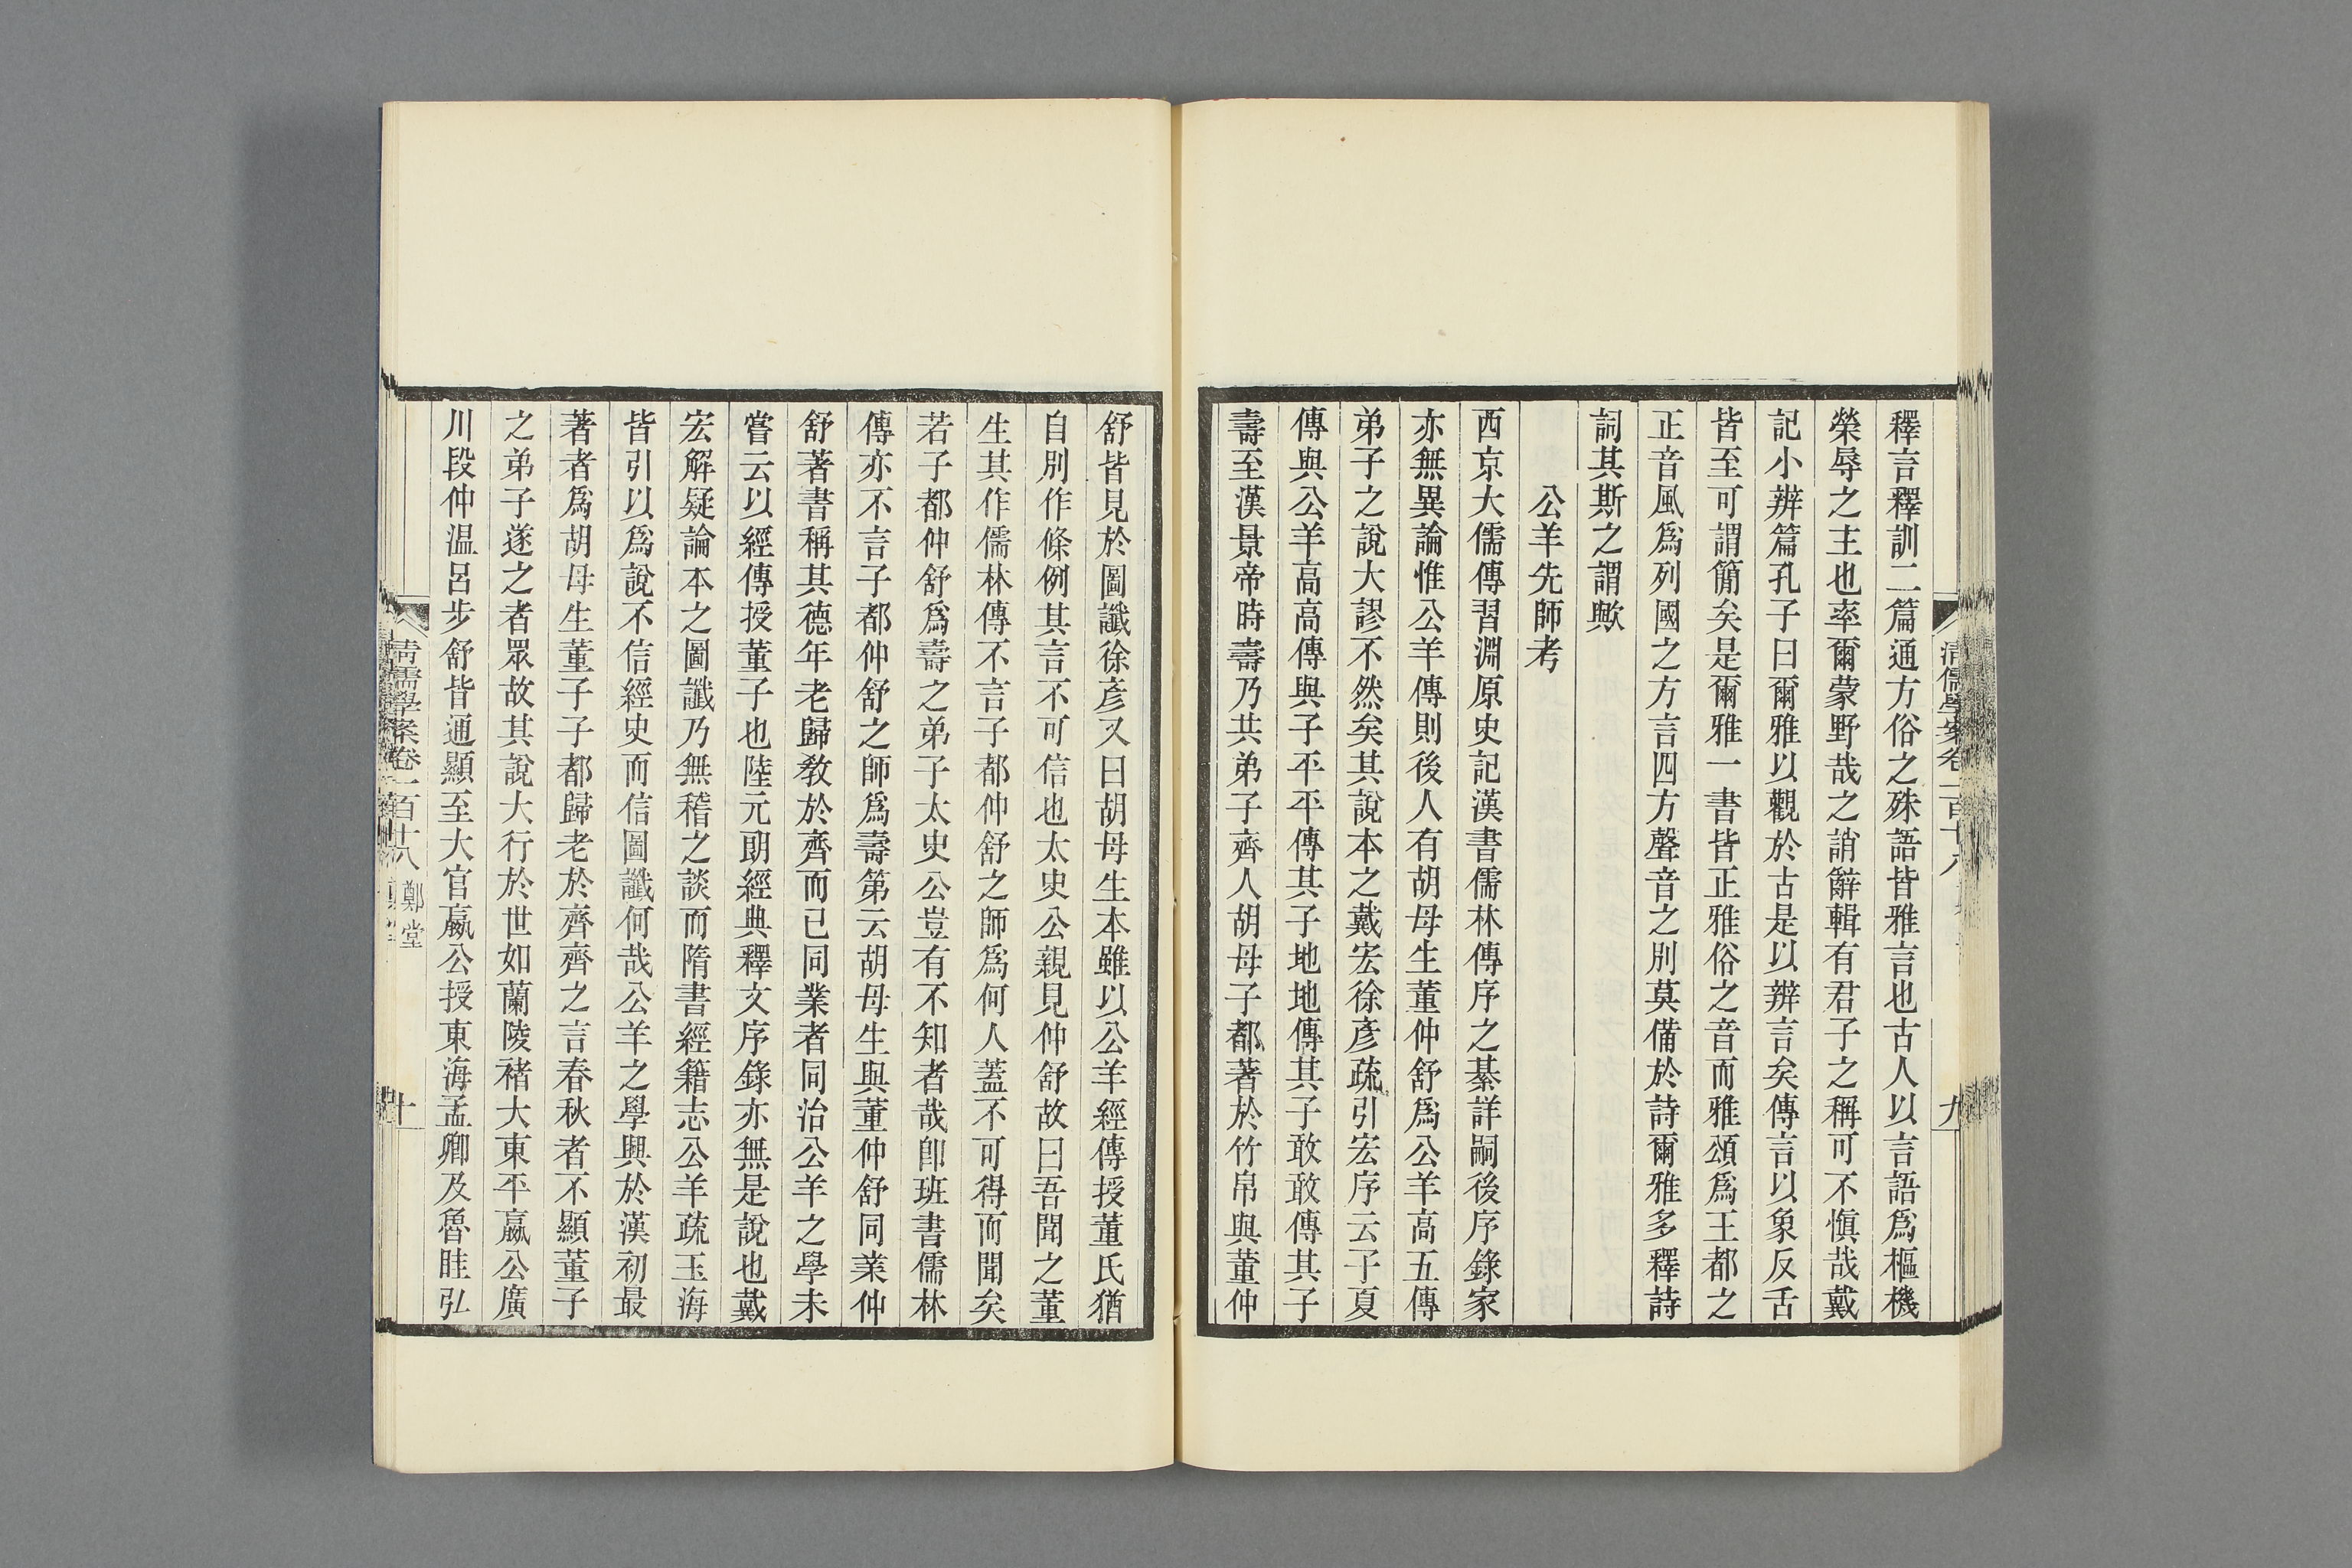 釋言釋訓二篇通方俗之殊語皆雅言也古人以言語爲樞機
榮辱之主也率爾蒙野哉之誚辭輯有君子之稱可不愼哉戴
記小辨篇孔子曰爾雅以觀於古是以辨言矣傳言以象反舌
皆至可謂簡矣是爾雅一書皆正雅俗之音而雅頌爲王都之
正音風爲列國之方言四方聲音之別莫備於詩爾雅多釋詩
詞其斯之謂歟
公羊先師考
西京大儒傳習淵原史記漢書儒林傳序之綦詳嗣後序錄家
亦無異論惟公羊傳則後人有胡母生董仲舒爲公羊高五傳
弟子之說大謬不然矣其說本之戴宏徐彥疏引宏序云子夏
傳與公羊高高傳與子平平傳其子地地傳其子敢敢傳其子
壽至漢景帝時壽乃共弟子齊人胡母子都著於竹帛與董仲
清儒學案卷一百十八
九
舒皆見於圖讖徐彥又曰胡母生本雖以公羊經傳授董氏猶
自別作條例其言不可信也太史公親見仲舒故曰吾聞之董
生其作儒林傳不言子都仲舒之師爲何人蓋不可得而聞矣
若子都仲舒爲壽之弟子太史公豈有不知者哉卽班書儒林
傳亦不言子都仲舒之師爲壽第云胡母生與董仲舒同業仲
舒著書稱其德年老歸敎於齊而已同業者同治公羊之學未
嘗云以經傳授董子也陸元朗經典釋文序錄亦無是說也戴
宏解疑論本之圖讖乃無稽之談而隋書經籍志公羊疏玉海
皆引以爲說不信經史而信圖讖何哉公羊之學興於漢初最
著者爲胡母生董子子都歸老於齊齊之言春秋者不顯董子
之弟子遂之者眾故其說大行於世如蘭陵褚大東平嬴公廣
川段仲温呂步舒皆通顯至大官嬴公授東海孟卿及魯眭弘
清儒學案卷一百十八 鄭堂
十